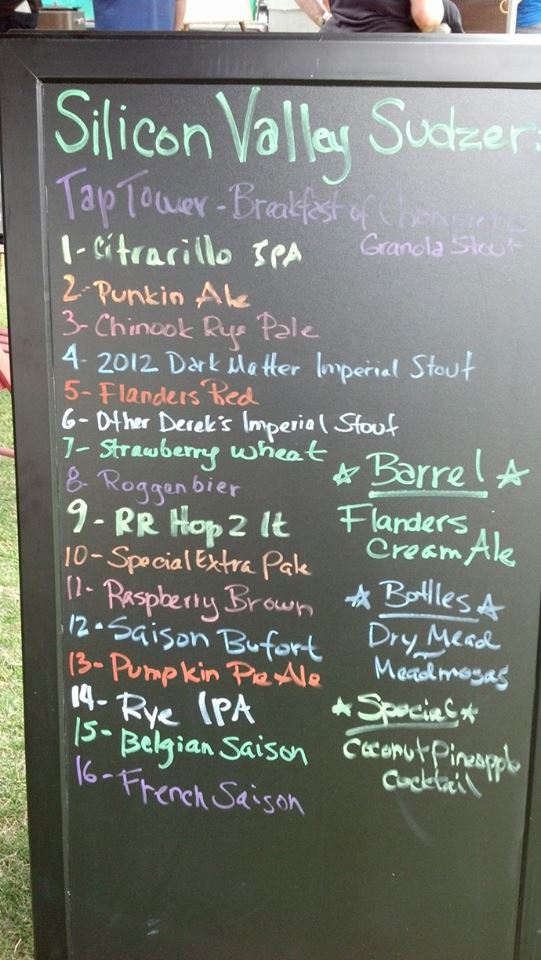 Silicon Valley Sudzers
Tap Tower - Breakfast of Champions
Granola Stout
1- Citrarillo IPA
2- Punkin Ale
3- Chinook Rye Pale
4- 2012 Dark Matter Imperial Stout
5- Flanders Red
6- Other Derek's Imperial Stout
7- Strawberry Wheat
8- Roggenbier
9- RR Hop 2 It
10- Special Extra Pale
11- Raspberry Brown
12- Saison Bufort
13- Pumpkin Pie Ale
14- Rye IPA
15- Belgian Saison
16- French Saison
Barrel
Flanders
Cream Ale
Bottles
Dry Mead
Meadmosas
Special
Coconut Pineapple
Cocktail